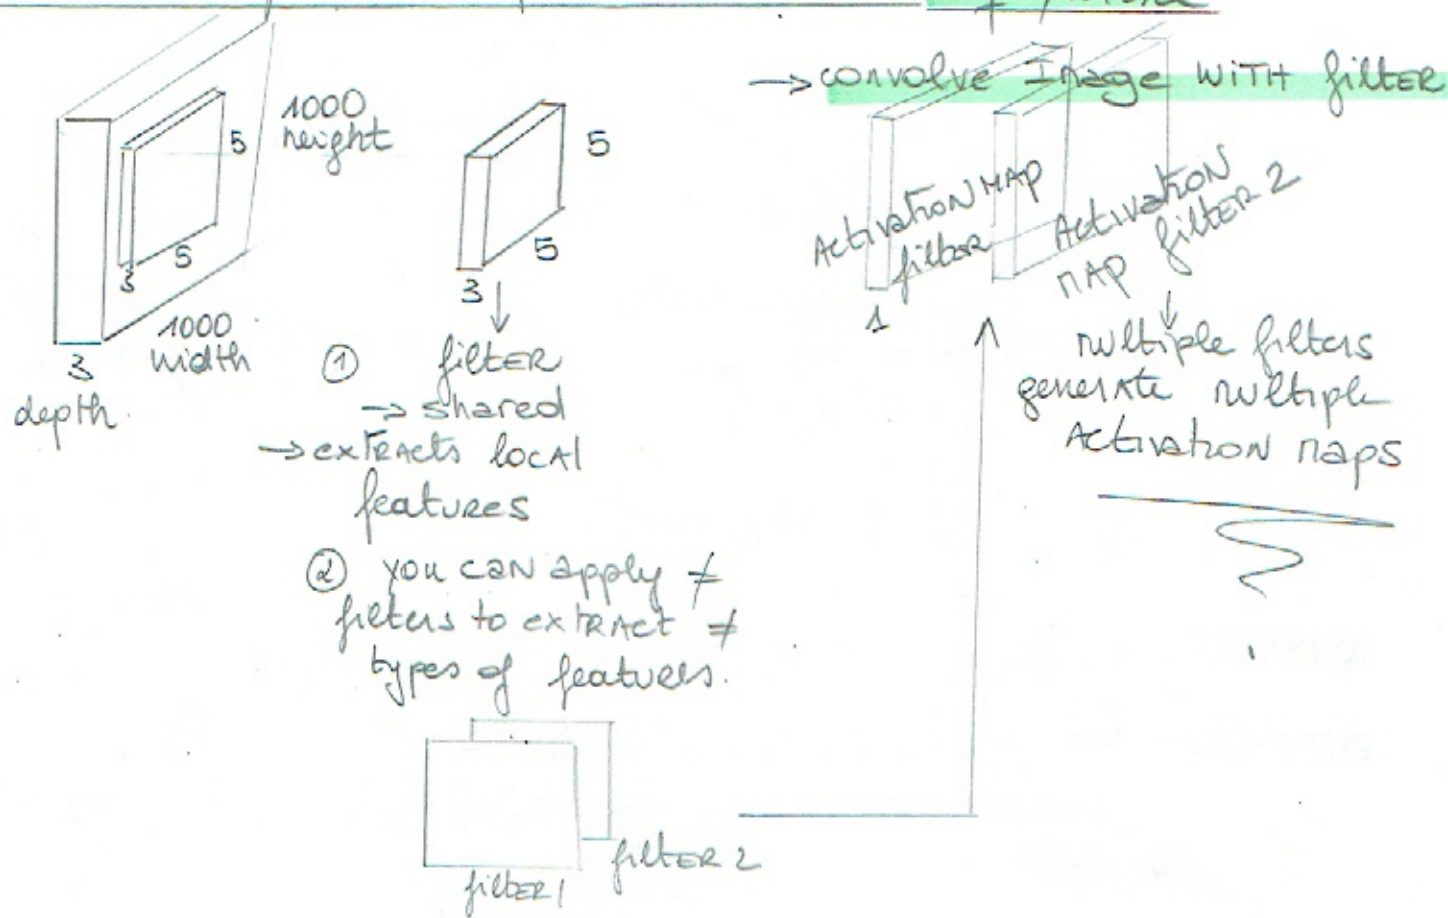 → convolve Image WITH filter
1000
height
5
5
3
1000
width
3
depth.
5
5
3
① filter
→ shared
→ extracts local
features
② you can apply ≠
filters to extract ≠
types of features.
filter 1
filter 2
Activation MAP
filter
1
Activation
MAP filter 2
multiple filters
generate multiple
Activation maps